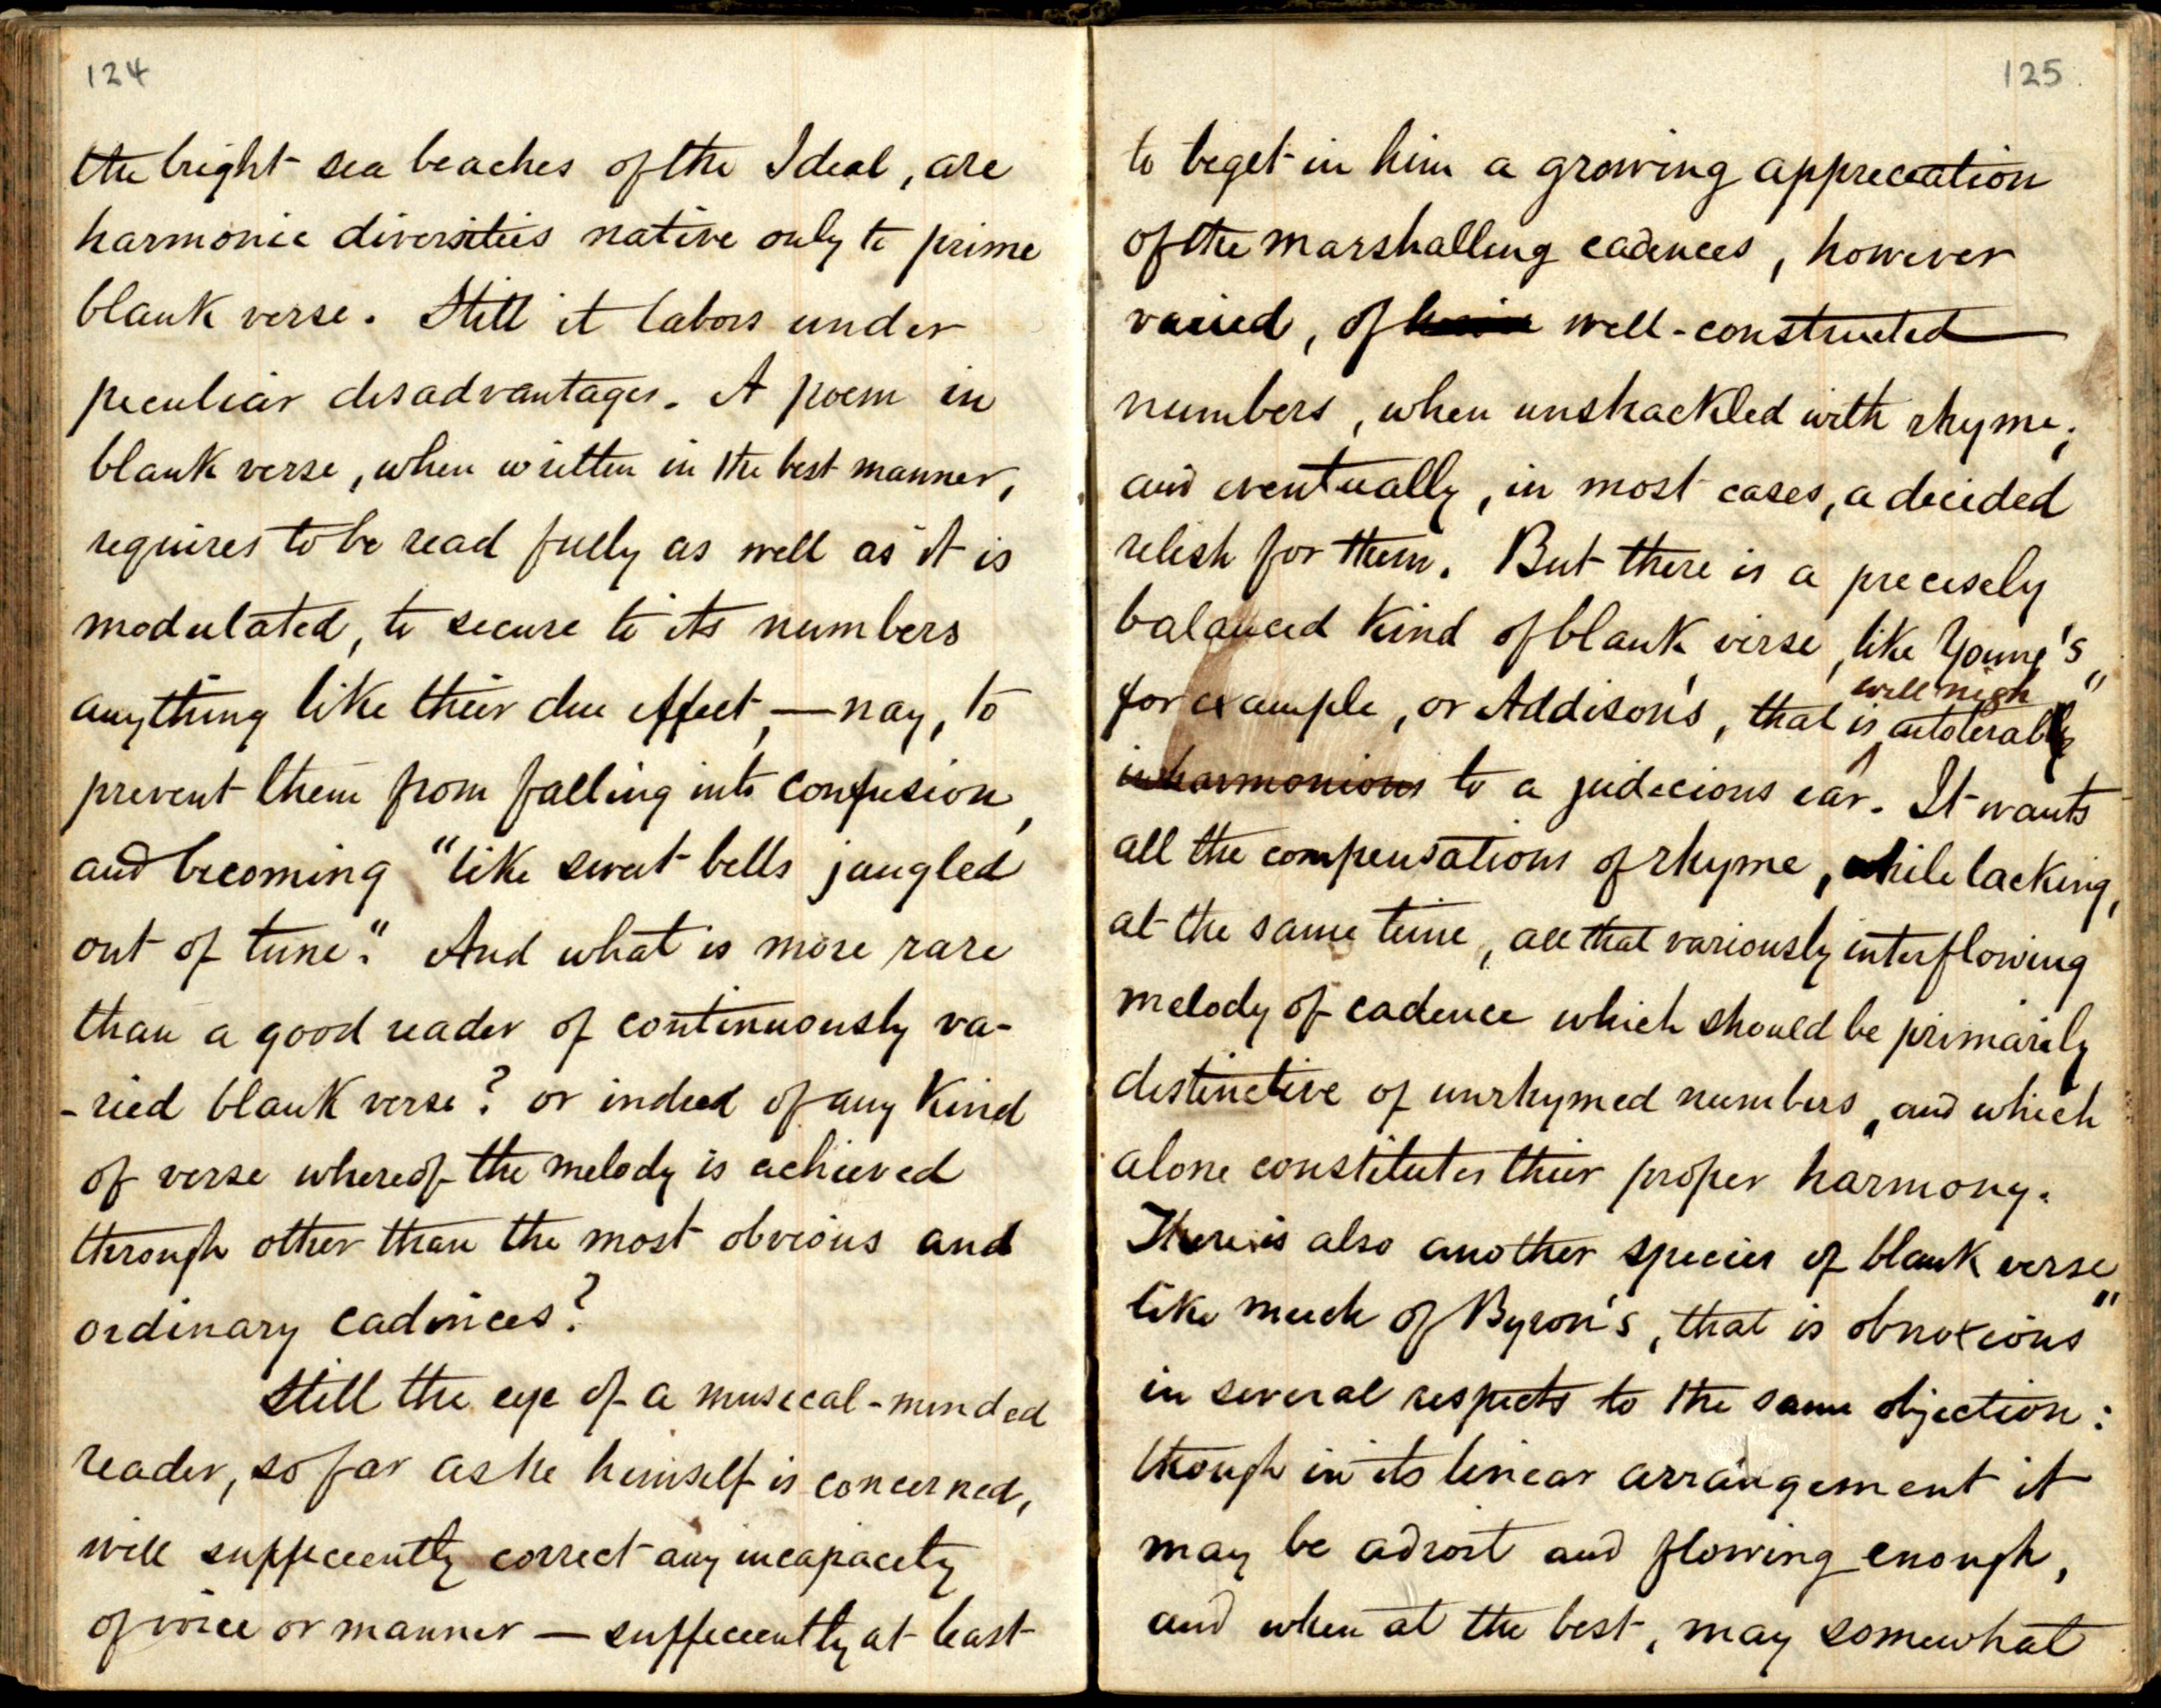 124
the bright sea beaches of the Ideal, are
harmonic diversities native only to prime
blank verse. Still it labors under
peculiar disadvantages. A poem in
blank verse, when written in the best manner,
requires to be read fully as well as it is
modulated, to secure to its numbers
anything like their due effect, — nay, to
prevent them from falling into confusion,
and becoming "like sweet bells jangled
out of tune." And what is more rare
than a good reader of continuously va-
-ried blank verse? or indeed of any kind
of verse whereof the melody is achieved
through other than the most obvious and
ordinary cadences?
Still the eye of a musical-minded
reader, so far as he himself is concerned,
will sufficiently correct any incapacity
of voice or manner — sufficiently at least
125
to beget in him a growing appreciation
of the marshalling cadences, however
varied, of well-constructed
numbers, when unshackled with rhyme;
and eventually, in most cases, a decided
relish for them. But there is a precisely
balanced kind of blank verse, like Young's,
well nigh
for example, or Addison's, that is intolerable
inharmonious to a judicious ear. It wants
all the compensations of rhyme, while lacking,
at the same time, all that variously interflowing
melody of cadence which should be primarily
distinctive of unrhymed numbers, and which
alone constitutes their proper harmony.
There is also another species of blank verse,
like much of Byron's, that is obnoxious
in several respects to the same objection:
though in its linear arrangement it
may be adroit and flowing enough,
and when at the best, may somewhat